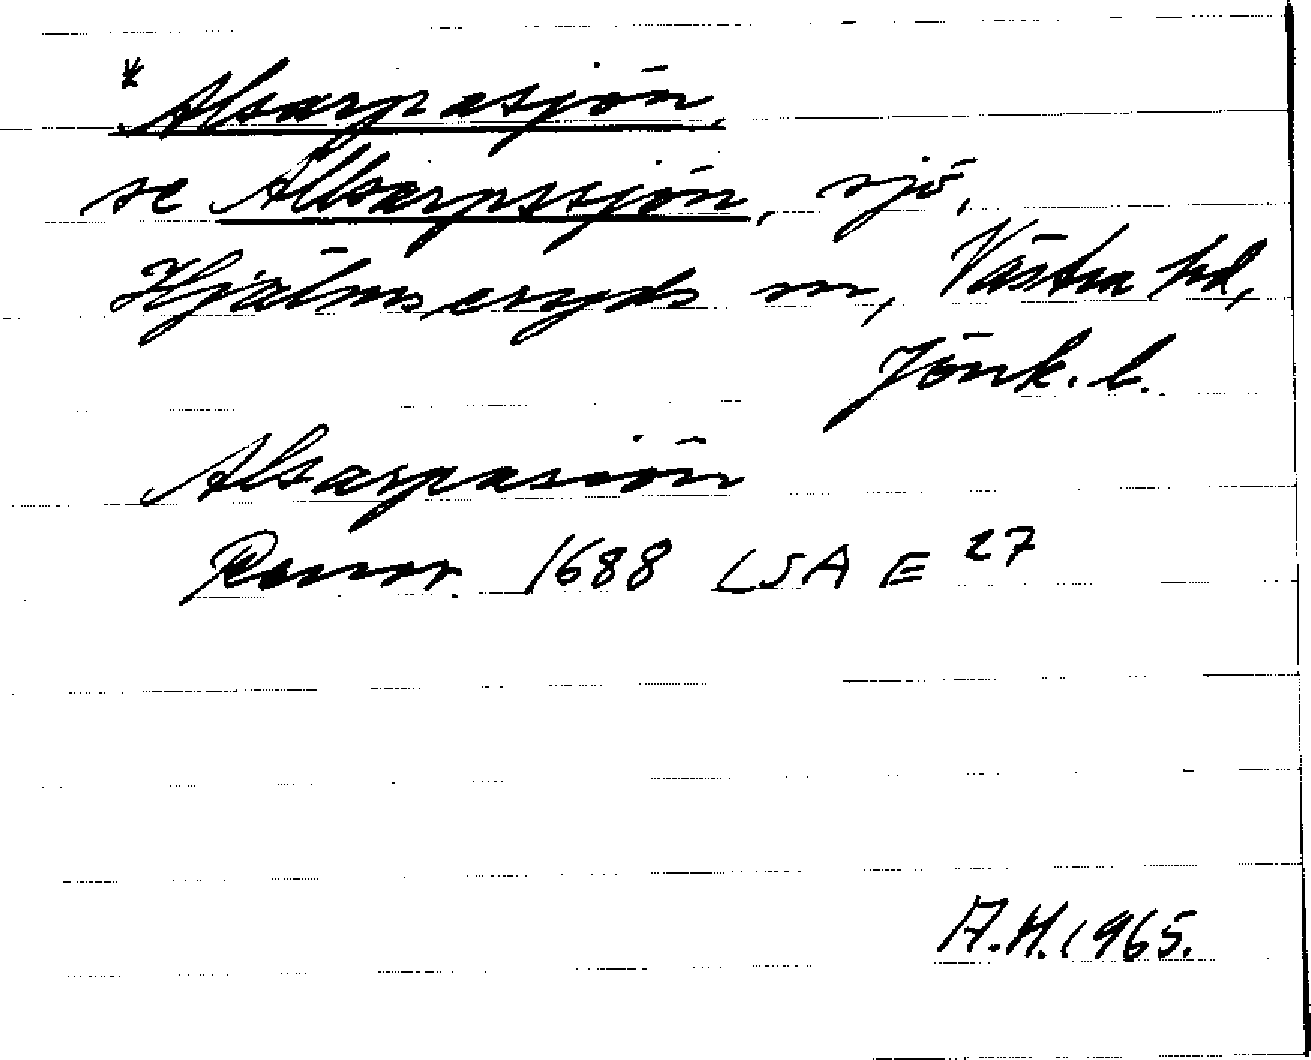 * Alsarpasjön,
se Allsarpssjön, sjö,
Hjälmseryds sn, Västra hd,
Jönk. l.
Alsarpasiön
Rannr. 1688 LSA E 27
A.H. 1965.